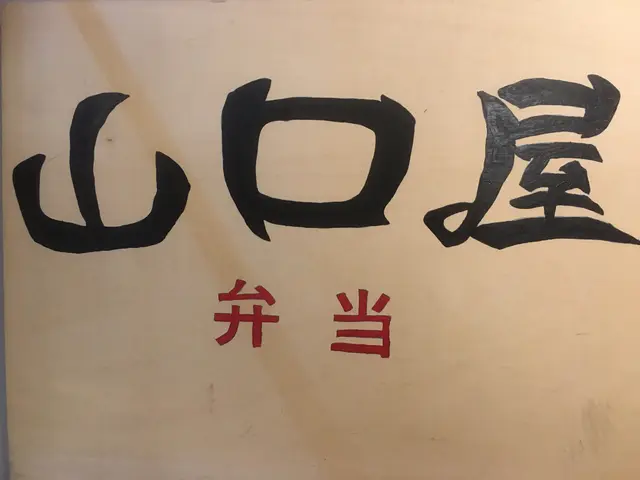 山口屋
弁当